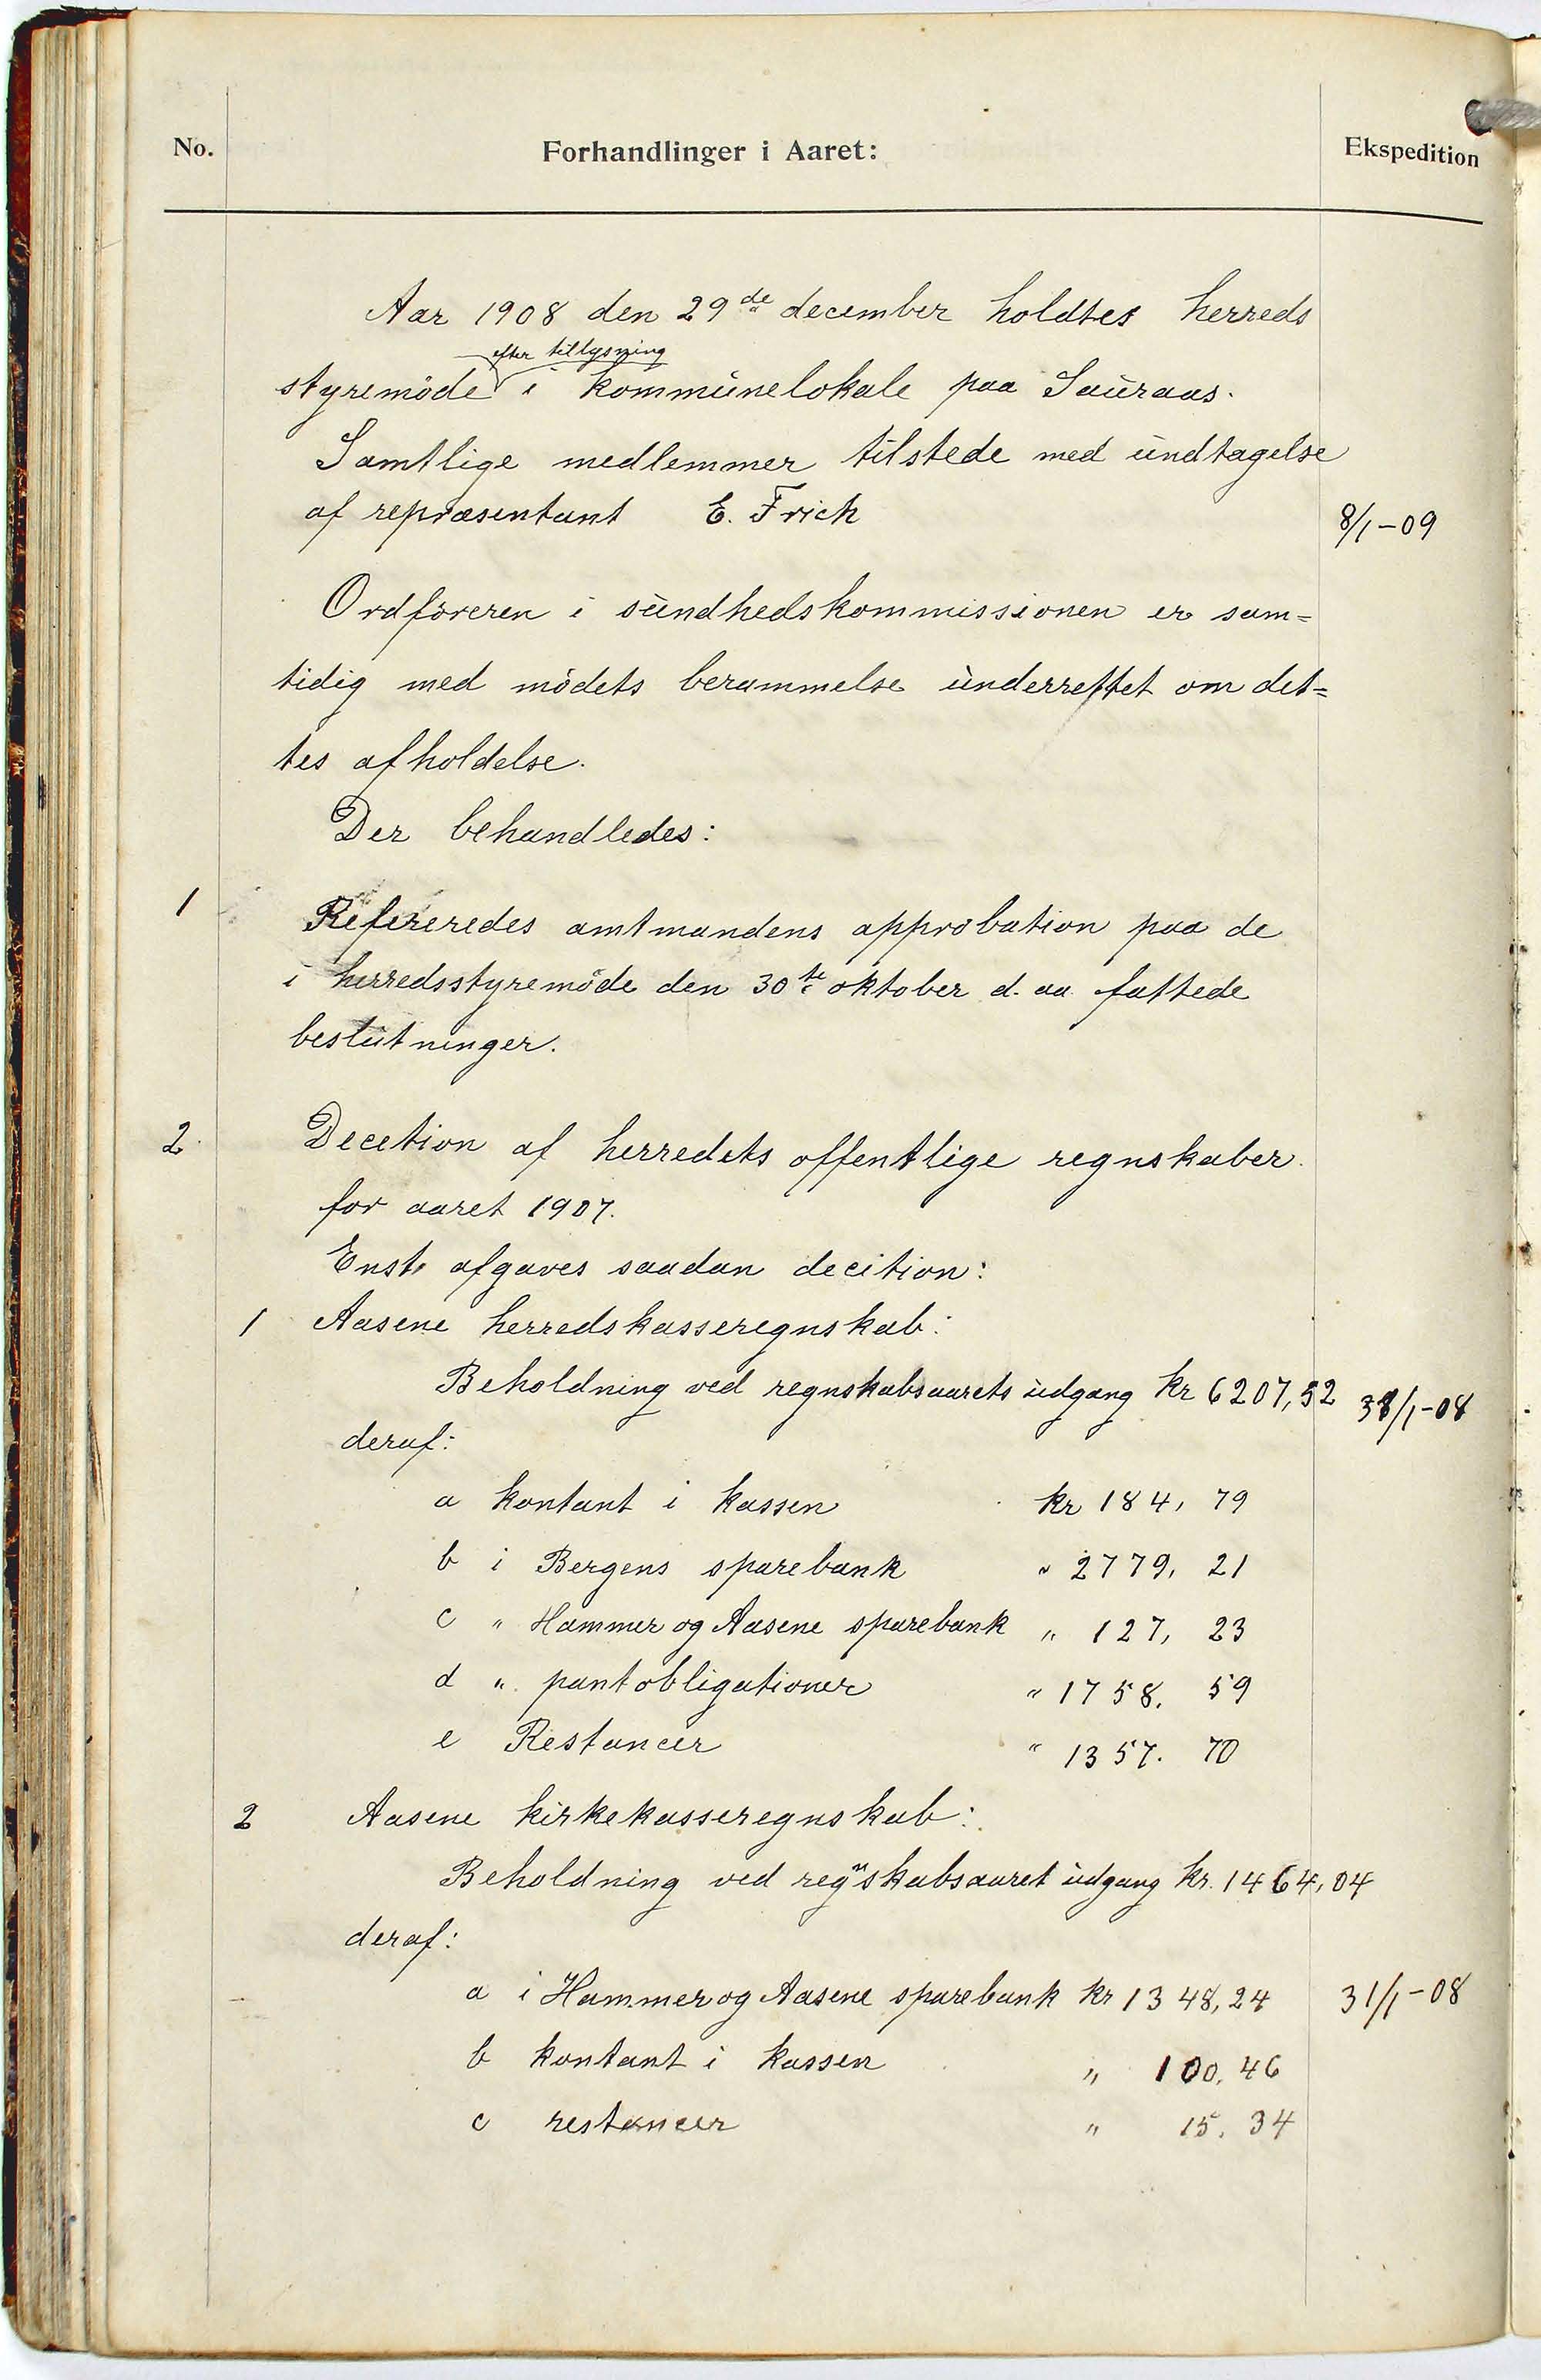 No.
Forhandlinger i Aaret:
Ekspedition
Aar 1908 den 29de december holdtes herreds
efter tillysning
styremöde i kommunelokale paa Sauraas.
Samtlige medlemmer tilstede med undtagelse
af repræsentant E. Frich
8/1-09
Ordföreren i sundhedskommissionen er sam=
tidig med mödets berammelse underrettet om det=
tes afholdelse.
Der behandledes:
1
Refereredes amtmandens approbation paa de
i herredsstyremöde den 30te oktober d. aa. fattede
beslutninger.
2.
Decetion af herredets offentlige regnskaber
for aaret 1907.
Enst. afgaves saadan decition:
1 Aasene herredskasseregnskab:
Beholdning ved regnskabsaarets udgang kr 6207,52
31/1-08
deraf:
a kontant i kassen kr 184, 79
b i Bergens sparebank " 2779, 21
c " Hammer og Aasene sparebank " 127, 23
d " pantobligationer " 1758. 59
e Restancer " 1357. 70
2 Aasene kirkekasseregnskab:
Beholdning ved regnskabsaaret udgang kr. 1464,04
deraf:
a i Hammer og Aasene sparebank kr 1348,24
31/1-08
b kontant i kassen " 100,46
c restancer " 15. 34